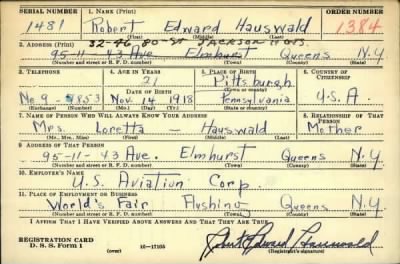 SERIAL NUMBER 1. NAME (Print) ORDER NUMBER
1481 Robert Edward Hauswald 1384
(First) (Middle) (Last)
2. ADDRESS (Print) 32-40 80-ST JACKSON HGTS.
95-11-43 Ave. Elmhurst Queens N.Y
(Number and street or R. F. D. number) (Town) (County) (State)
3. TELEPHONE 4. AGE IN YEARS 5. PLACE OF BIRTH 6. COUNTRY OF CITIZENSHIP
21 Pittsburgh
DATE OF BIRTH (Town or county)
Ne 9-9853 Nov. 14 1918 Pennsylvania U.S.A.
(Exchange) (Number) (Mo.) (Day) (Yr.) (State or country)
7. NAME OF PERSON WHO WILL ALWAYS KNOW YOUR ADDRESS 8. RELATIONSHIP OF THAT PERSON
Mrs. Loretta - Hauswald Mother
(Mr., Mrs., Miss) (First) (Middle) (Last)
9. ADDRESS OF THAT PERSON
95-11-43 Ave. Elmhurst Queens N.Y
(Number and street or R. F. D. number) (Town) (County) (State)
10. EMPLOYER'S NAME
U.S. Aviation Corp.
11. PLACE OF EMPLOYMENT OR BUSINESS
World's Fair Flushing Queens N.Y.
(Number and street or R. F. D. number) (Town) (County) (State)
I AFFIRM THAT I HAVE VERIFIED ABOVE ANSWERS AND THAT THEY ARE TRUE.
REGISTRATION CARD
D. S. S. Form 1 (over) 16-17105 Robert Edward Hauswald
(Registrant's signature)